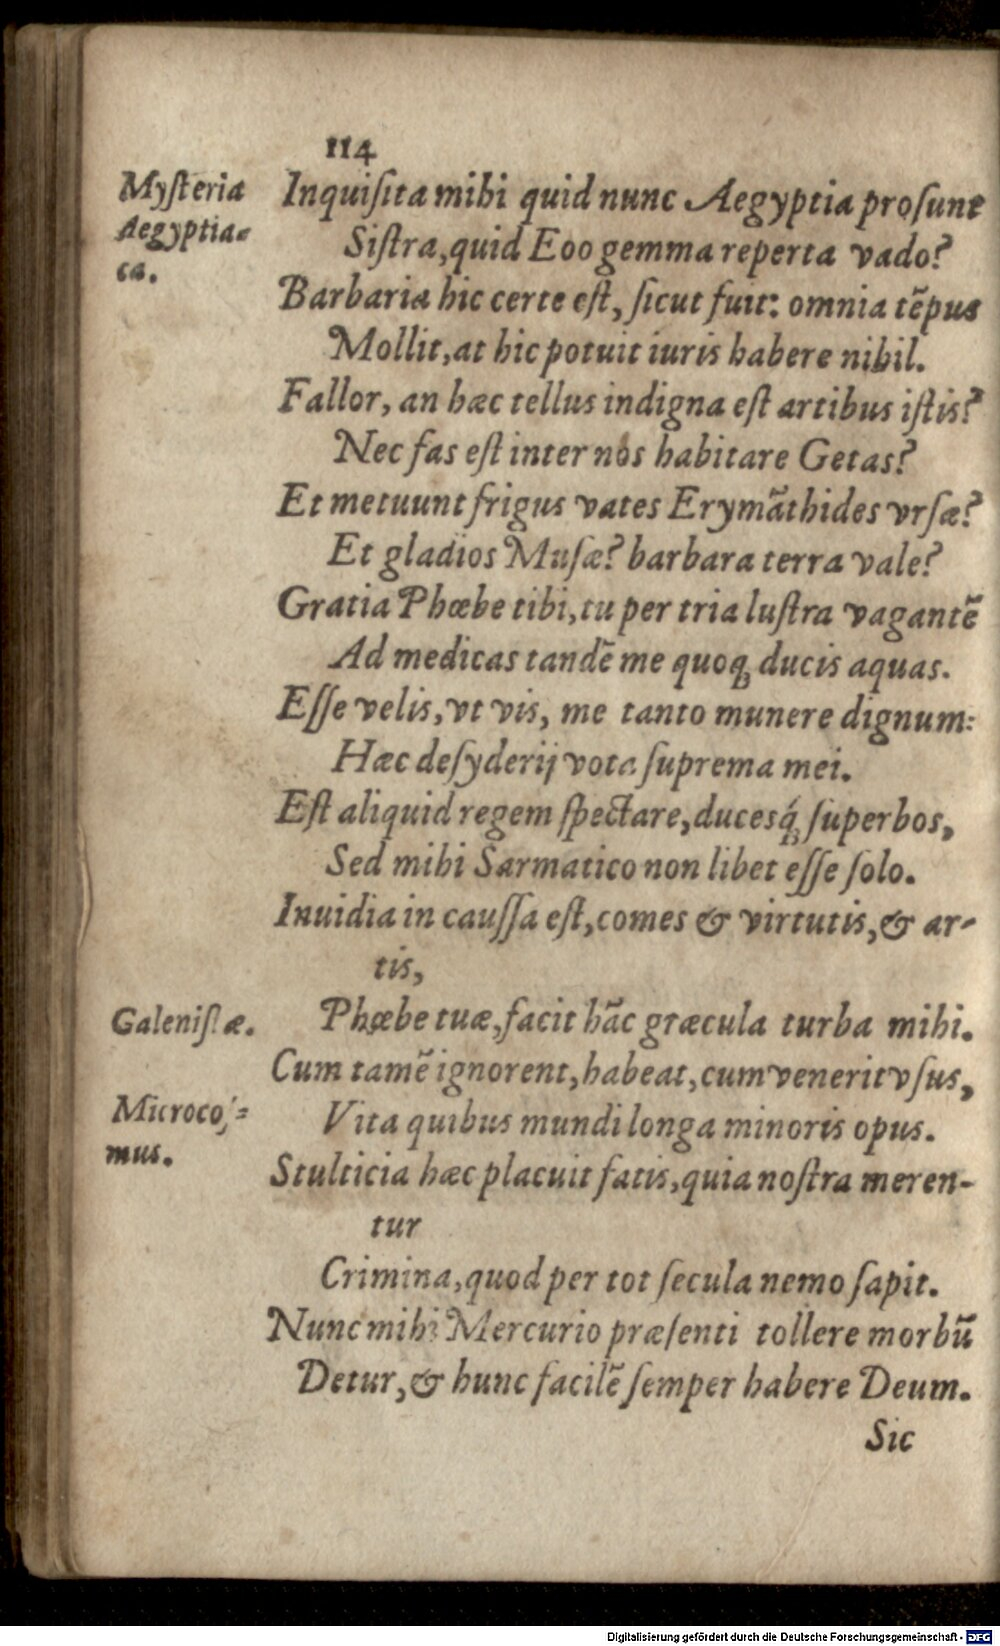 114
Mysteria
Aegyptia-
ca.
Inquiſita mihi quid nunc Aegyptia proſunt
Siſtra, quid Eoo gemma reperta vado?
Barbaria hic certe eſt, ſicut fuit: omnia tẽpus
Mollit, at hic potuit iuris habere nihil.
Fallor, an hæc tellus indigna eſt artibus iſtis?
Nec fas eſt inter nos habitare Getas?
Et metuunt frigus vates Erymãthides vrſæ?
Et gladios Muſæ? barbara terra vale?
Gratia Phœbe tibi, tu per tria luſtra vagantẽ
Ad medicas tandẽ me quoq; ducis aquas.
Eſſe velis, vt vis, me tanto munere dignum:
Hæc deſyderij vota ſuprema mei.
Eſt aliquid regem ſpectare, ducesq́; ſuperbos,
Sed mihi Sarmatico non libet eſſe ſolo.
Inuidia in cauſſa eſt, comes & virtutis, & ar-
tis,
Galeniſtæ.
Phœbe tuæ, facit hãc græcula turba mihi.
Cum tamẽ ignorent, habeat, cum venerit vſus,
Microcoſ-
mus.
Vita quibus mundi longa minoris opus.
Stulticia hæc placuit fatis, quia noſtra meren-
tur
Crimina, quod per tot ſecula nemo ſapit.
Nunc mihi Mercurio præſenti tollere morbũ
Detur, & hunc facilẽ ſemper habere Deum.
Sic
Digitalisierung gefördert durch die Deutsche Forschungsgemeinschaft - DFG